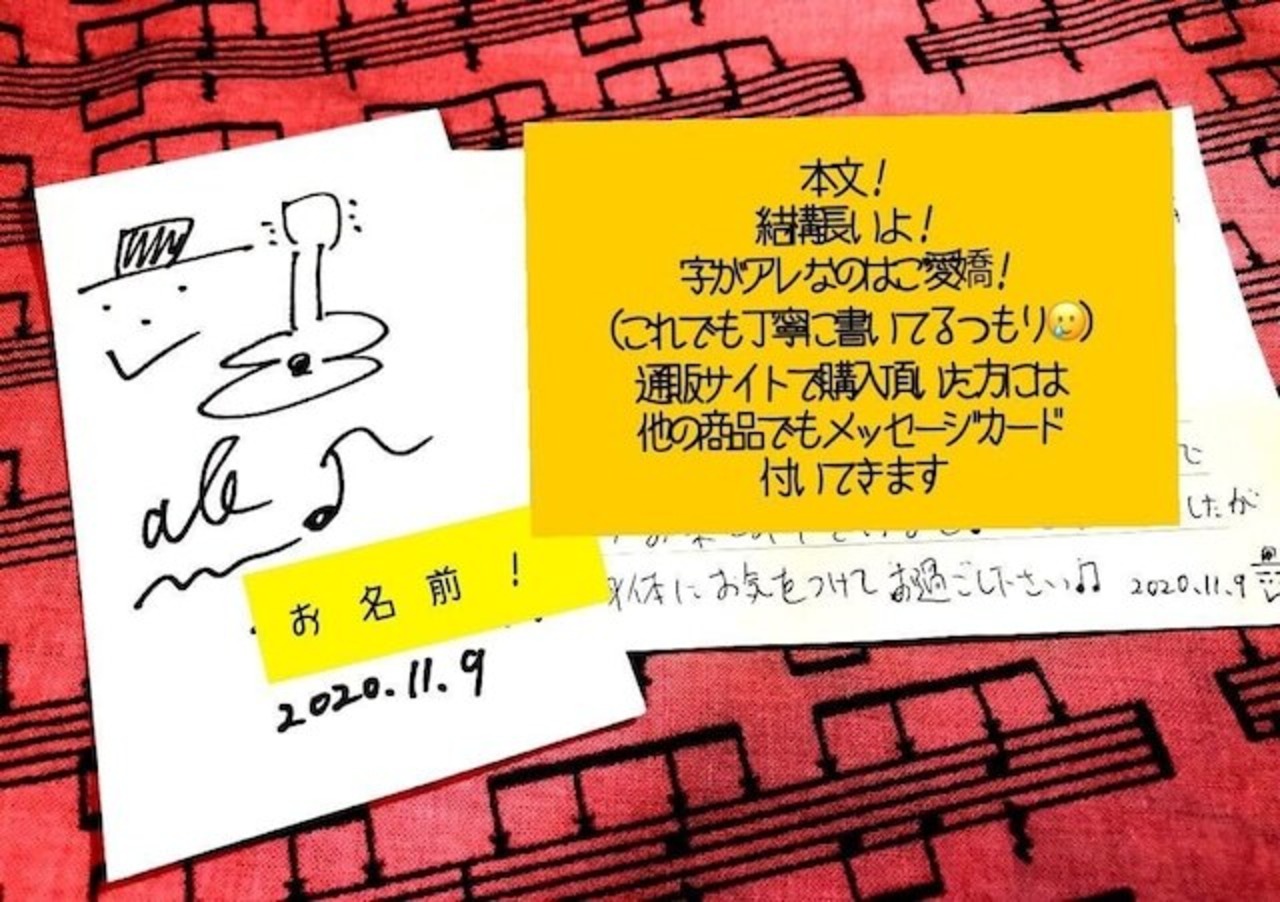 お名前！
2020.11.9
本文！
結構長いよ！
字がアレなのはご愛嬌！
(これでも丁寧に書いてるつもり🥲)
通販サイトで購入頂いた方には
他の商品でもメッセージカード
付いてきます
に
したが
体にお気をつけてお過ごし下さい♫ 2020.11.9